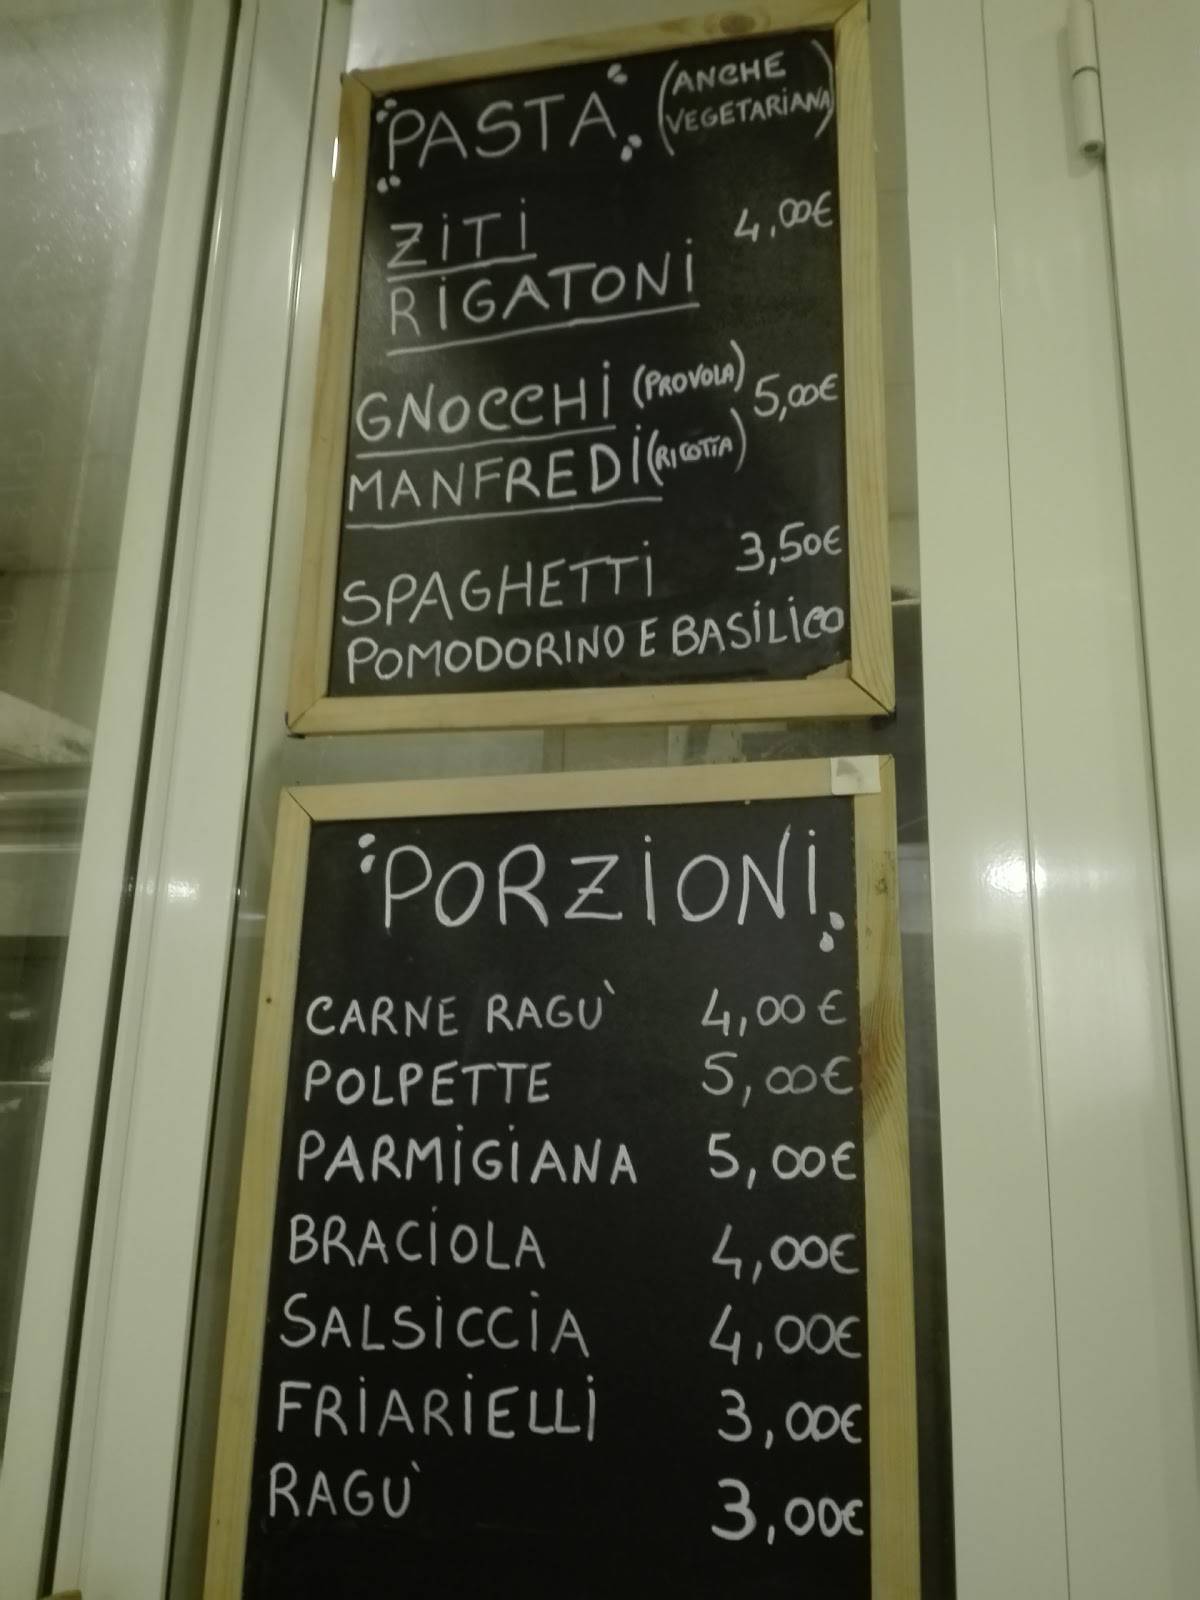 PASTA (ANCHE VEGETARIANA)
ZITI 4,00€
RIGATONI
GNOCCHI (PROVOLA) 5,00€
MANFREDI (RICOTTA)
SPAGHETTI 3,50€
POMODORINO E BASILICO
PORZIONI
CARNE RAGÙ 4,00€
POLPETTE 5,00€
PARMIGIANA 5,00€
BRACIOLA 4,00€
SALSICCIA 4,00€
FRIARIELLI 3,00€
RAGÙ 3,00€